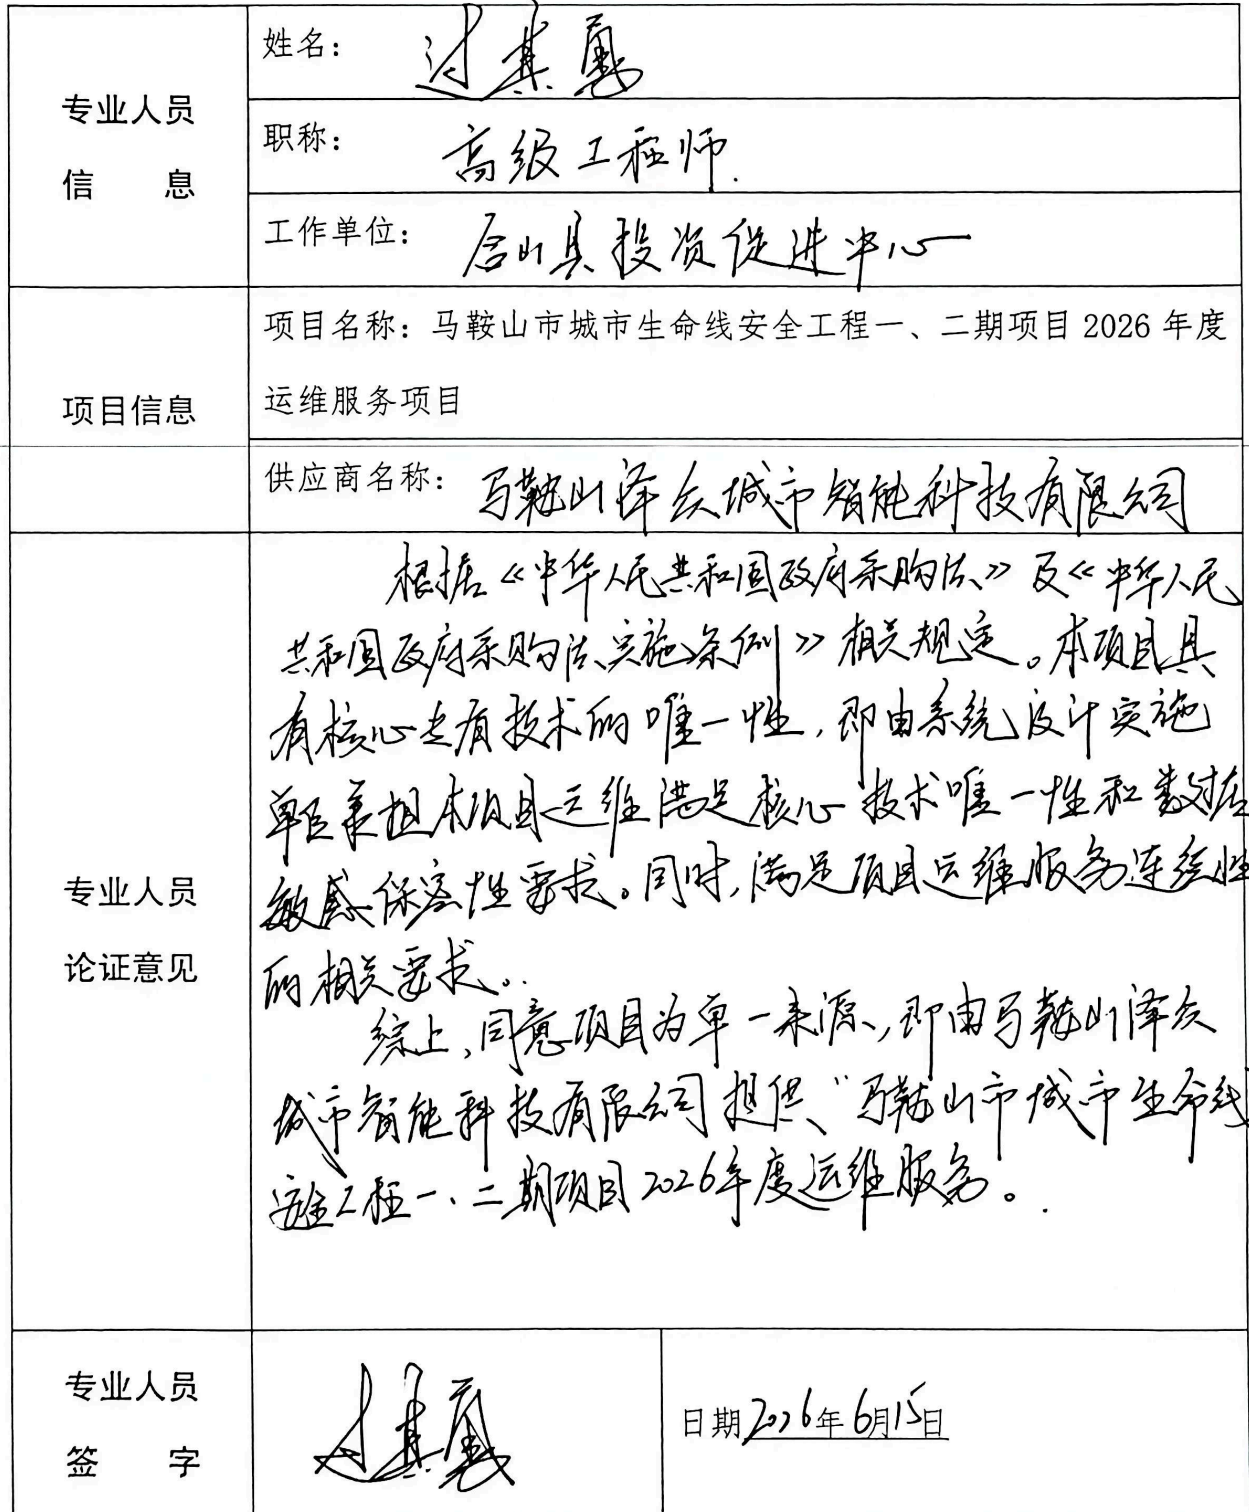 专业人员
信 息
姓名：过其
职称：高级工程师.
工作单位：含山县投资促进中心
项目信息
项目名称：马鞍山市城市生命线安全工程一、二期项目 2026 年度
运维服务项目
供应商名称：马鞍山泽众城市智能科技有限公司
专业人员
论证意见
根据《中华人民共和国政府采购法》及《中华人民
共和国政府采购法实施条例》相关规定。本项目具
有核心专有技术的唯一性，即由系统设计实施
单位承担本项目运维满足核心技术唯一性和数据
敏感保密性要求。同时，满足项目运维服务连续性
的相关要求。
综上，同意项目为单一来源，即由马鞍山泽众
城市智能科技有限公司提供“马鞍山市城市生命线
安全工程一、二期项目2026年度运维服务。
专业人员
签 字
过其
日期2026年6月15日